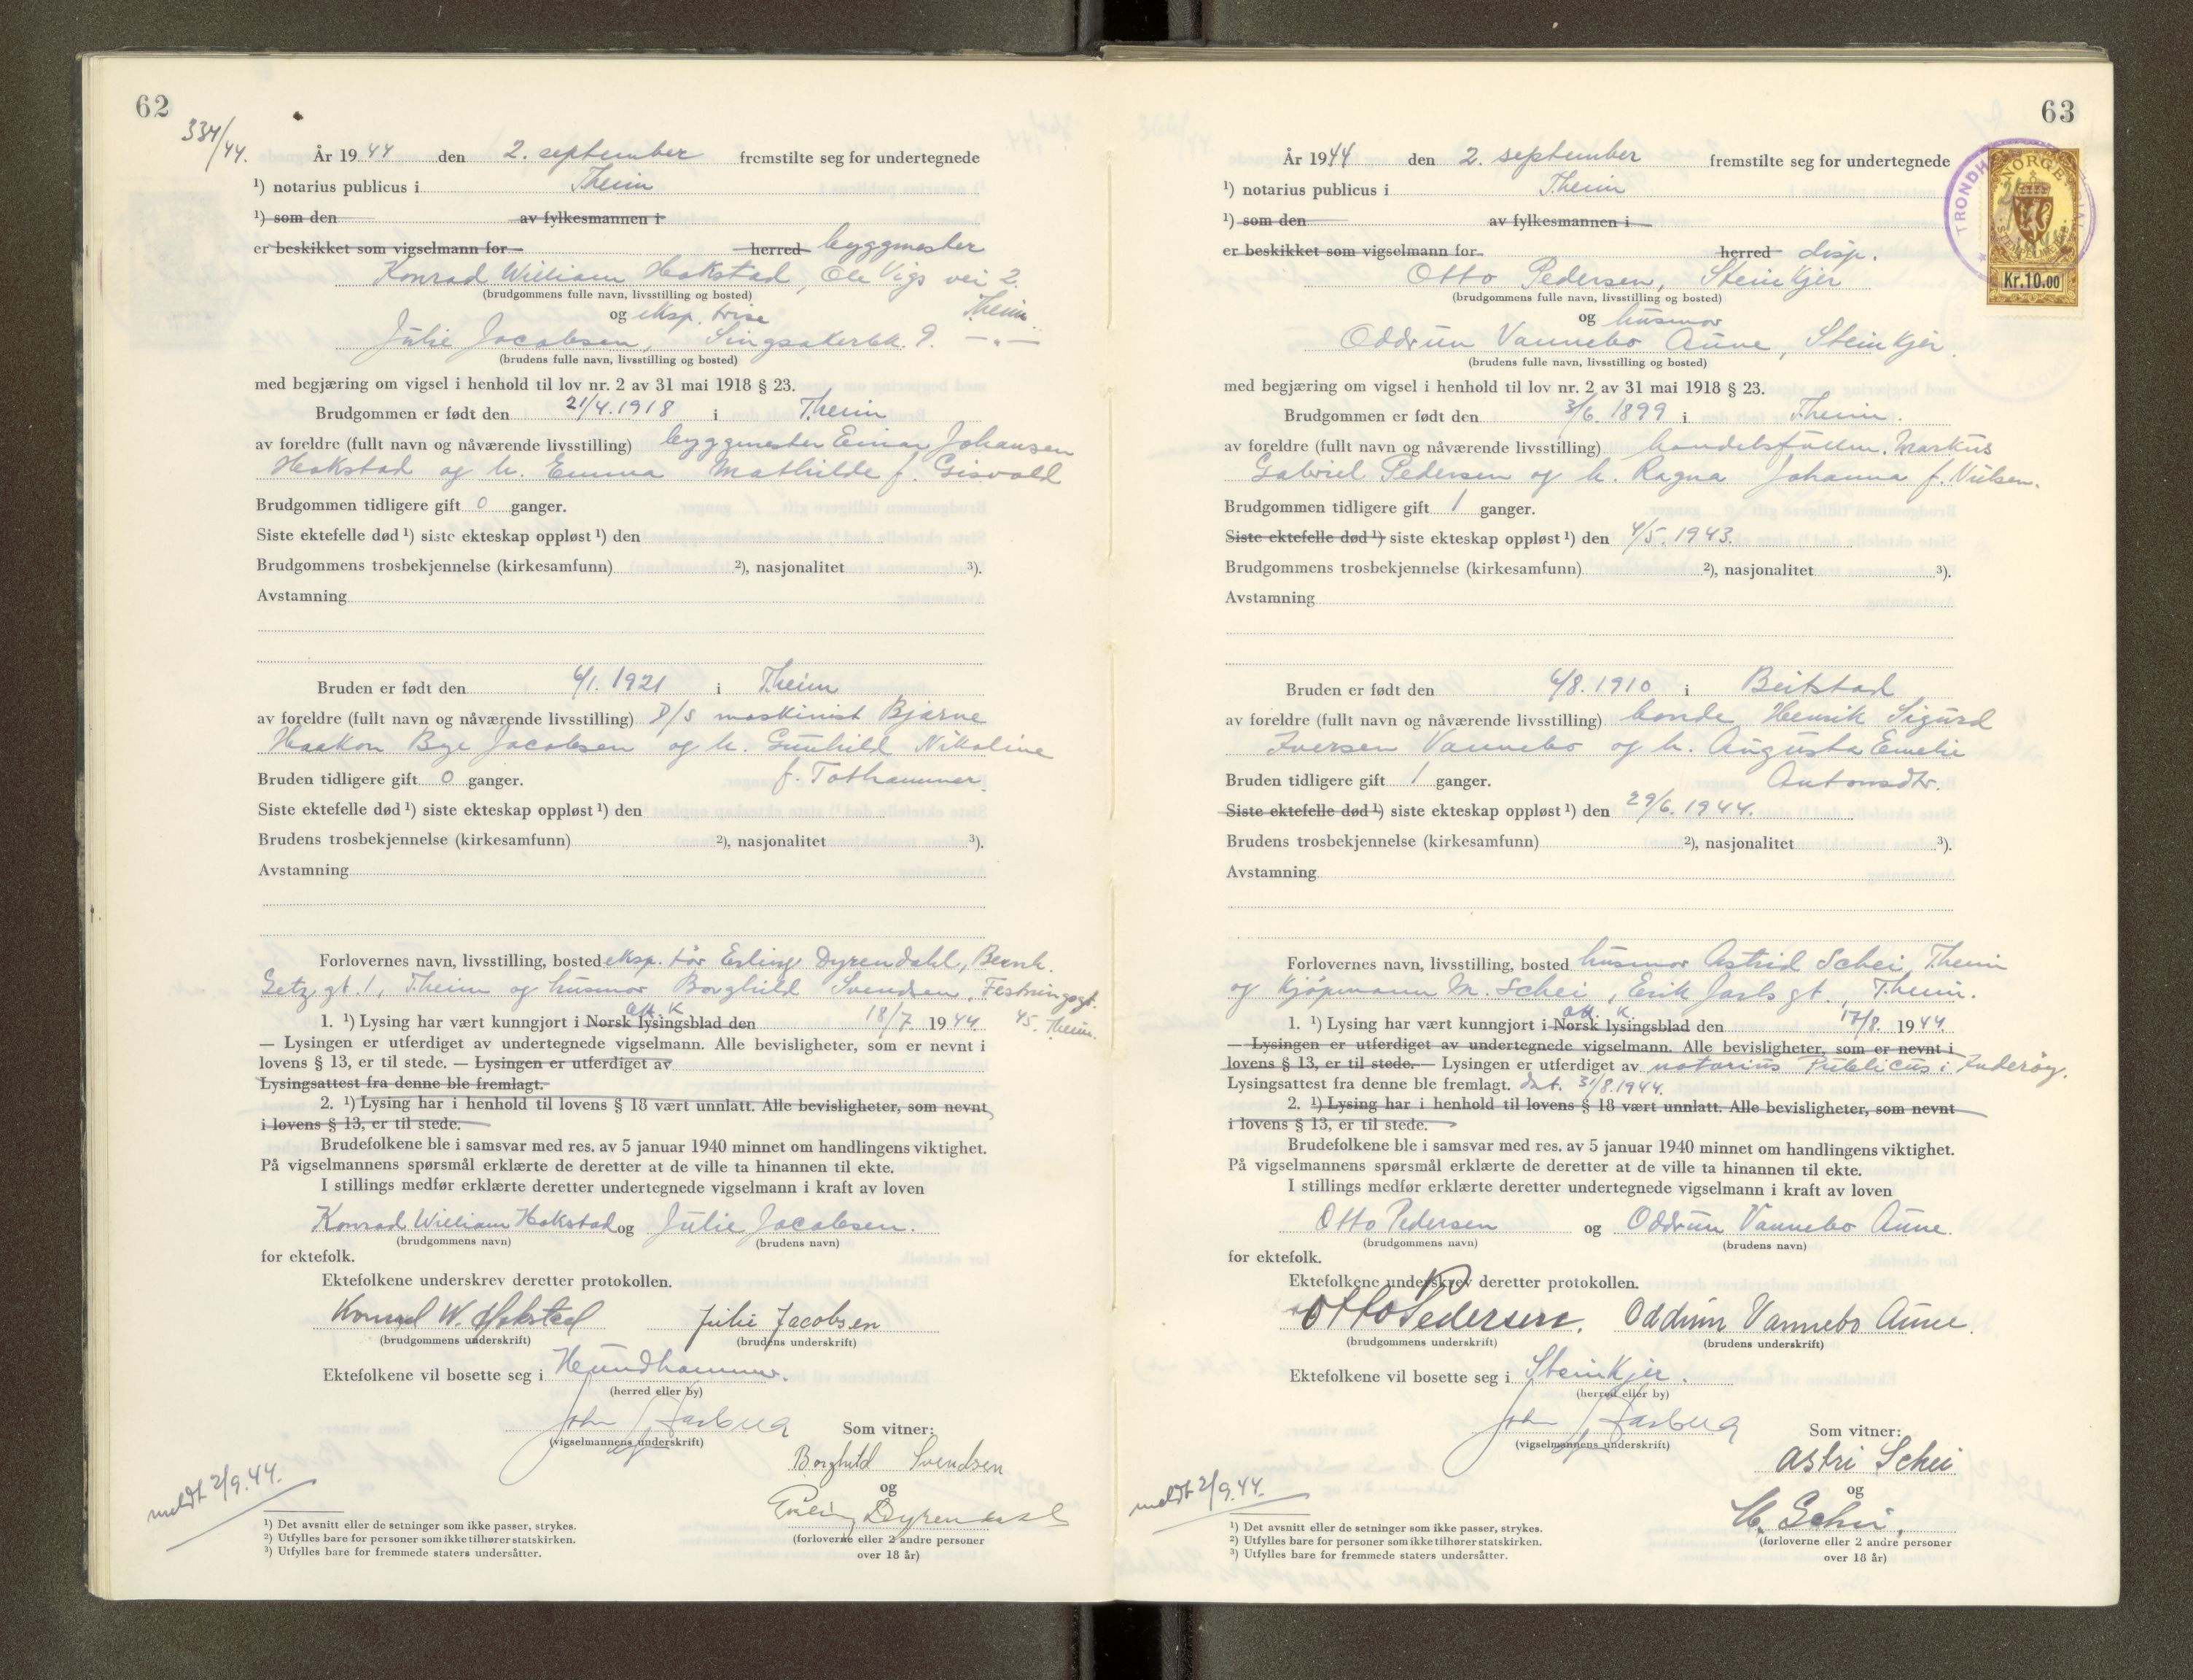 62
334/44.
År 1944 den 2. september fremstilte seg for undertegnede
¹) notarius publicus i T.heim
¹) som den av fylkesmannen i
er beskikket som vigselmann for herred byggmester
Konrad William Hokstad, Ole Vigs vei 2.
(brudgommens fulle navn, livsstilling og bosted) T.heim.
og eksp. trise
Julie Jacobsen, Singsakerbk. 9. —„—
(brudens fulle navn, livsstilling og bosted)
med begjæring om vigsel i henhold til lov nr. 2 av 31 mai 1918 § 23.
Brudgommen er født den 21/4.1918 i T.heim
av foreldre (fullt navn og nåværende livsstilling) byggmester Einar Johansen
Hokstad og h. Emma Mathilde f. Gisvold
Brudgommen tidligere gift 0 ganger.
Siste ektefelle død ¹) siste ekteskap oppløst ¹) den
Brudgommens trosbekjennelse (kirkesamfunn) ²), nasjonalitet ³).
Avstamning
Bruden er født den 6/1. 1921 i T.heim
av foreldre (fullt navn og nåværende livsstilling) D/S maskinist Bjarne
Haakon Bye Jacobsen og h. Gunhild Nikoline
Bruden tidligere gift 0 ganger. f. Tothammer.
Siste ektefelle død ¹) siste ekteskap oppløst ¹) den
Brudens trosbekjennelse (kirkesamfunn) ²), nasjonalitet ³).
Avstamning
Forlovernes navn, livsstilling, bosted eksp. tør Erling Dyrendahl, Bernh.
Getz gt. 1, T.heim og husmor Borghild Svendsen, Festningsgt.
1. ¹) Lysing har vært kunngjort i Norsk lysingsblad den 18/7 1944 45. T.heim.
— Lysingen er utferdiget av undertegnede vigselmann. Alle bevisligheter, som er nevnt i
lovens § 13, er til stede. — Lysingen er utferdiget av
Lysingsattest fra denne ble fremlagt.
2. ¹) Lysing har i henhold til lovens § 18 vært unnlatt. Alle bevisligheter, som nevnt
i lovens § 13, er til stede.
Brudefolkene ble i samsvar med res. av 5 januar 1940 minnet om handlingens viktighet.
På vigselmannens spørsmål erklærte de deretter at de ville ta hinannen til ekte.
I stillings medfør erklærte deretter undertegnede vigselmann i kraft av loven
Konrad William Hokstad og Julie Jacobsen.
(brudgommens navn) (brudens navn)
for ektefolk.
Ektefolkene underskrev deretter protokollen.
Konrad W. Hokstad Julie Jacobsen
(brudgommens underskrift) (brudens underskrift)
Ektefolkene vil bosette seg i Hundhammer.
(herred eller by)
(vigselmannens underskrift) Som vitner:
Borghild Svendsen
og
Erling Dyrendahl
meldt 2/9.44.
(forloverne eller 2 andre personer
over 18 år)
¹) Det avsnitt eller de setninger som ikke passer, strykes.
²) Utfylles bare for personer som ikke tilhører statskirken.
³) Utfylles bare for fremmede staters undersåtter.
63
TRONDH
NORGE
STEMPELMERKE
Kr.10.00
År 1944 den 2. september fremstilte seg for undertegnede
¹) notarius publicus i T.heim
¹) som den av fylkesmannen i
er beskikket som vigselmann for herred disp.
Otto Pedersen, Steinkjer
(brudgommens fulle navn, livsstilling og bosted)
og husmor
Oddrun Vannebo Aune, Steinkjer.
(brudens fulle navn, livsstilling og bosted)
med begjæring om vigsel i henhold til lov nr. 2 av 31 mai 1918 § 23.
Brudgommen er født den 3/6. 1899 i T.heim.
av foreldre (fullt navn og nåværende livsstilling) handelsfullm. Markus
Gabriel Pedersen og h. Ragna Johanna f. Nilsen.
Brudgommen tidligere gift 1 ganger.
Siste ektefelle død ¹) siste ekteskap oppløst ¹) den 4/5. 1943.
Brudgommens trosbekjennelse (kirkesamfunn) ²), nasjonalitet ³).
Avstamning
Bruden er født den 6/8. 1910 i Beitstad
av foreldre (fullt navn og nåværende livsstilling) bonde Henrik Sigurd
Iversen Vannebo og h. Augusta Emelie
Bruden tidligere gift 1 ganger. Antonsdtr.
Siste ektefelle død ¹) siste ekteskap oppløst ¹) den 29/6. 1944.
Brudens trosbekjennelse (kirkesamfunn) ²), nasjonalitet ³).
Avstamning
Forlovernes navn, livsstilling, bosted husmor Astrid Schei, T.heim
og kjøpmann M. Schei, Erik Jarls gt., T.heim.
1. ¹) Lysing har vært kunngjort i Norsk lysingsblad den 17/8. 1944.
— Lysingen er utferdiget av undertegnede vigselmann. Alle bevisligheter, som er nevnt i
lovens § 13, er til stede. — Lysingen er utferdiget av notarius Publicus i Inderøy.
Lysingsattest fra denne ble fremlagt. dat. 31/8.1944.
2. ¹) Lysing har i henhold til lovens § 18 vært unnlatt. Alle bevisligheter, som nevnt
i lovens § 13, er til stede.
Brudefolkene ble i samsvar med res. av 5 januar 1940 minnet om handlingens viktighet.
På vigselmannens spørsmål erklærte de deretter at de ville ta hinannen til ekte.
I stillings medfør erklærte deretter undertegnede vigselmann i kraft av loven
Otto Pedersen og Oddrun Vannebo Aune.
(brudgommens navn) (brudens navn)
for ektefolk.
Ektefolkene underskrev deretter protokollen.
Otto Pedersen. Oddrun Vannebo Aune.
(brudgommens underskrift) (brudens underskrift)
Ektefolkene vil bosette seg i Steinkjer.
(herred eller by)
(vigselmannens underskrift) Som vitner:
Astri Schei
og
M. Schei,
meldt 2/9.44.
(forloverne eller 2 andre personer
over 18 år)
¹) Det avsnitt eller de setninger som ikke passer, strykes.
²) Utfylles bare for personer som ikke tilhører statskirken.
³) Utfylles bare for fremmede staters undersåtter.